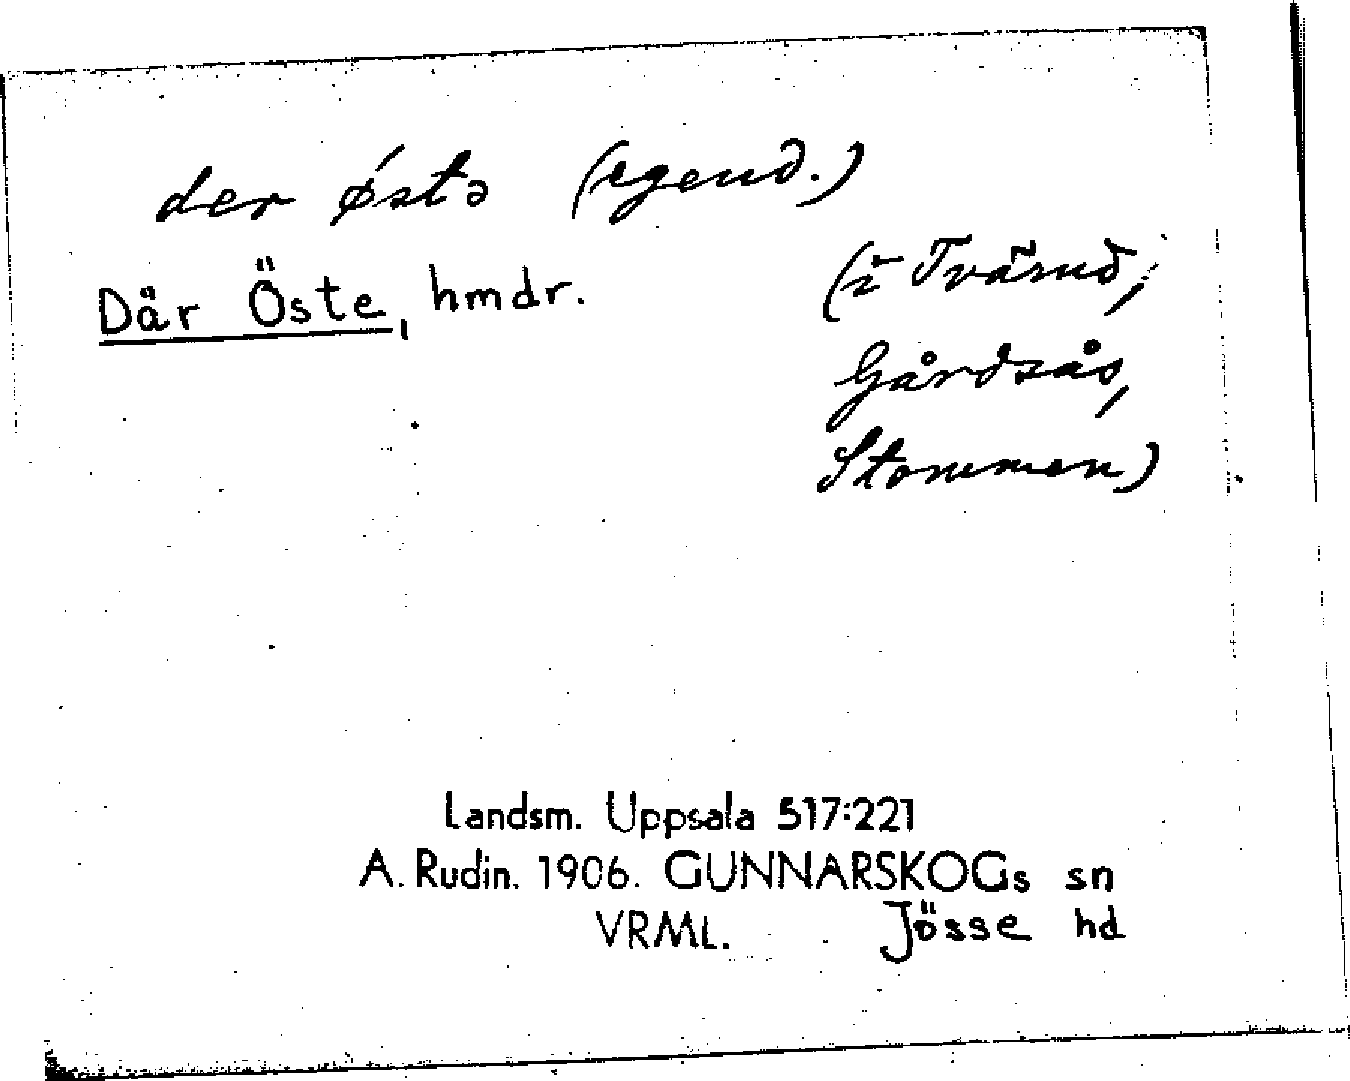 der ǿstə (egend.)
Där Öste, hmdr.
(i Tvärud,
Gårdsås,
Stommen)
Landsm. Uppsala 517:221
A. Rudin. 1906. GUNNARSKOGs sn
VRML. Jösse hd